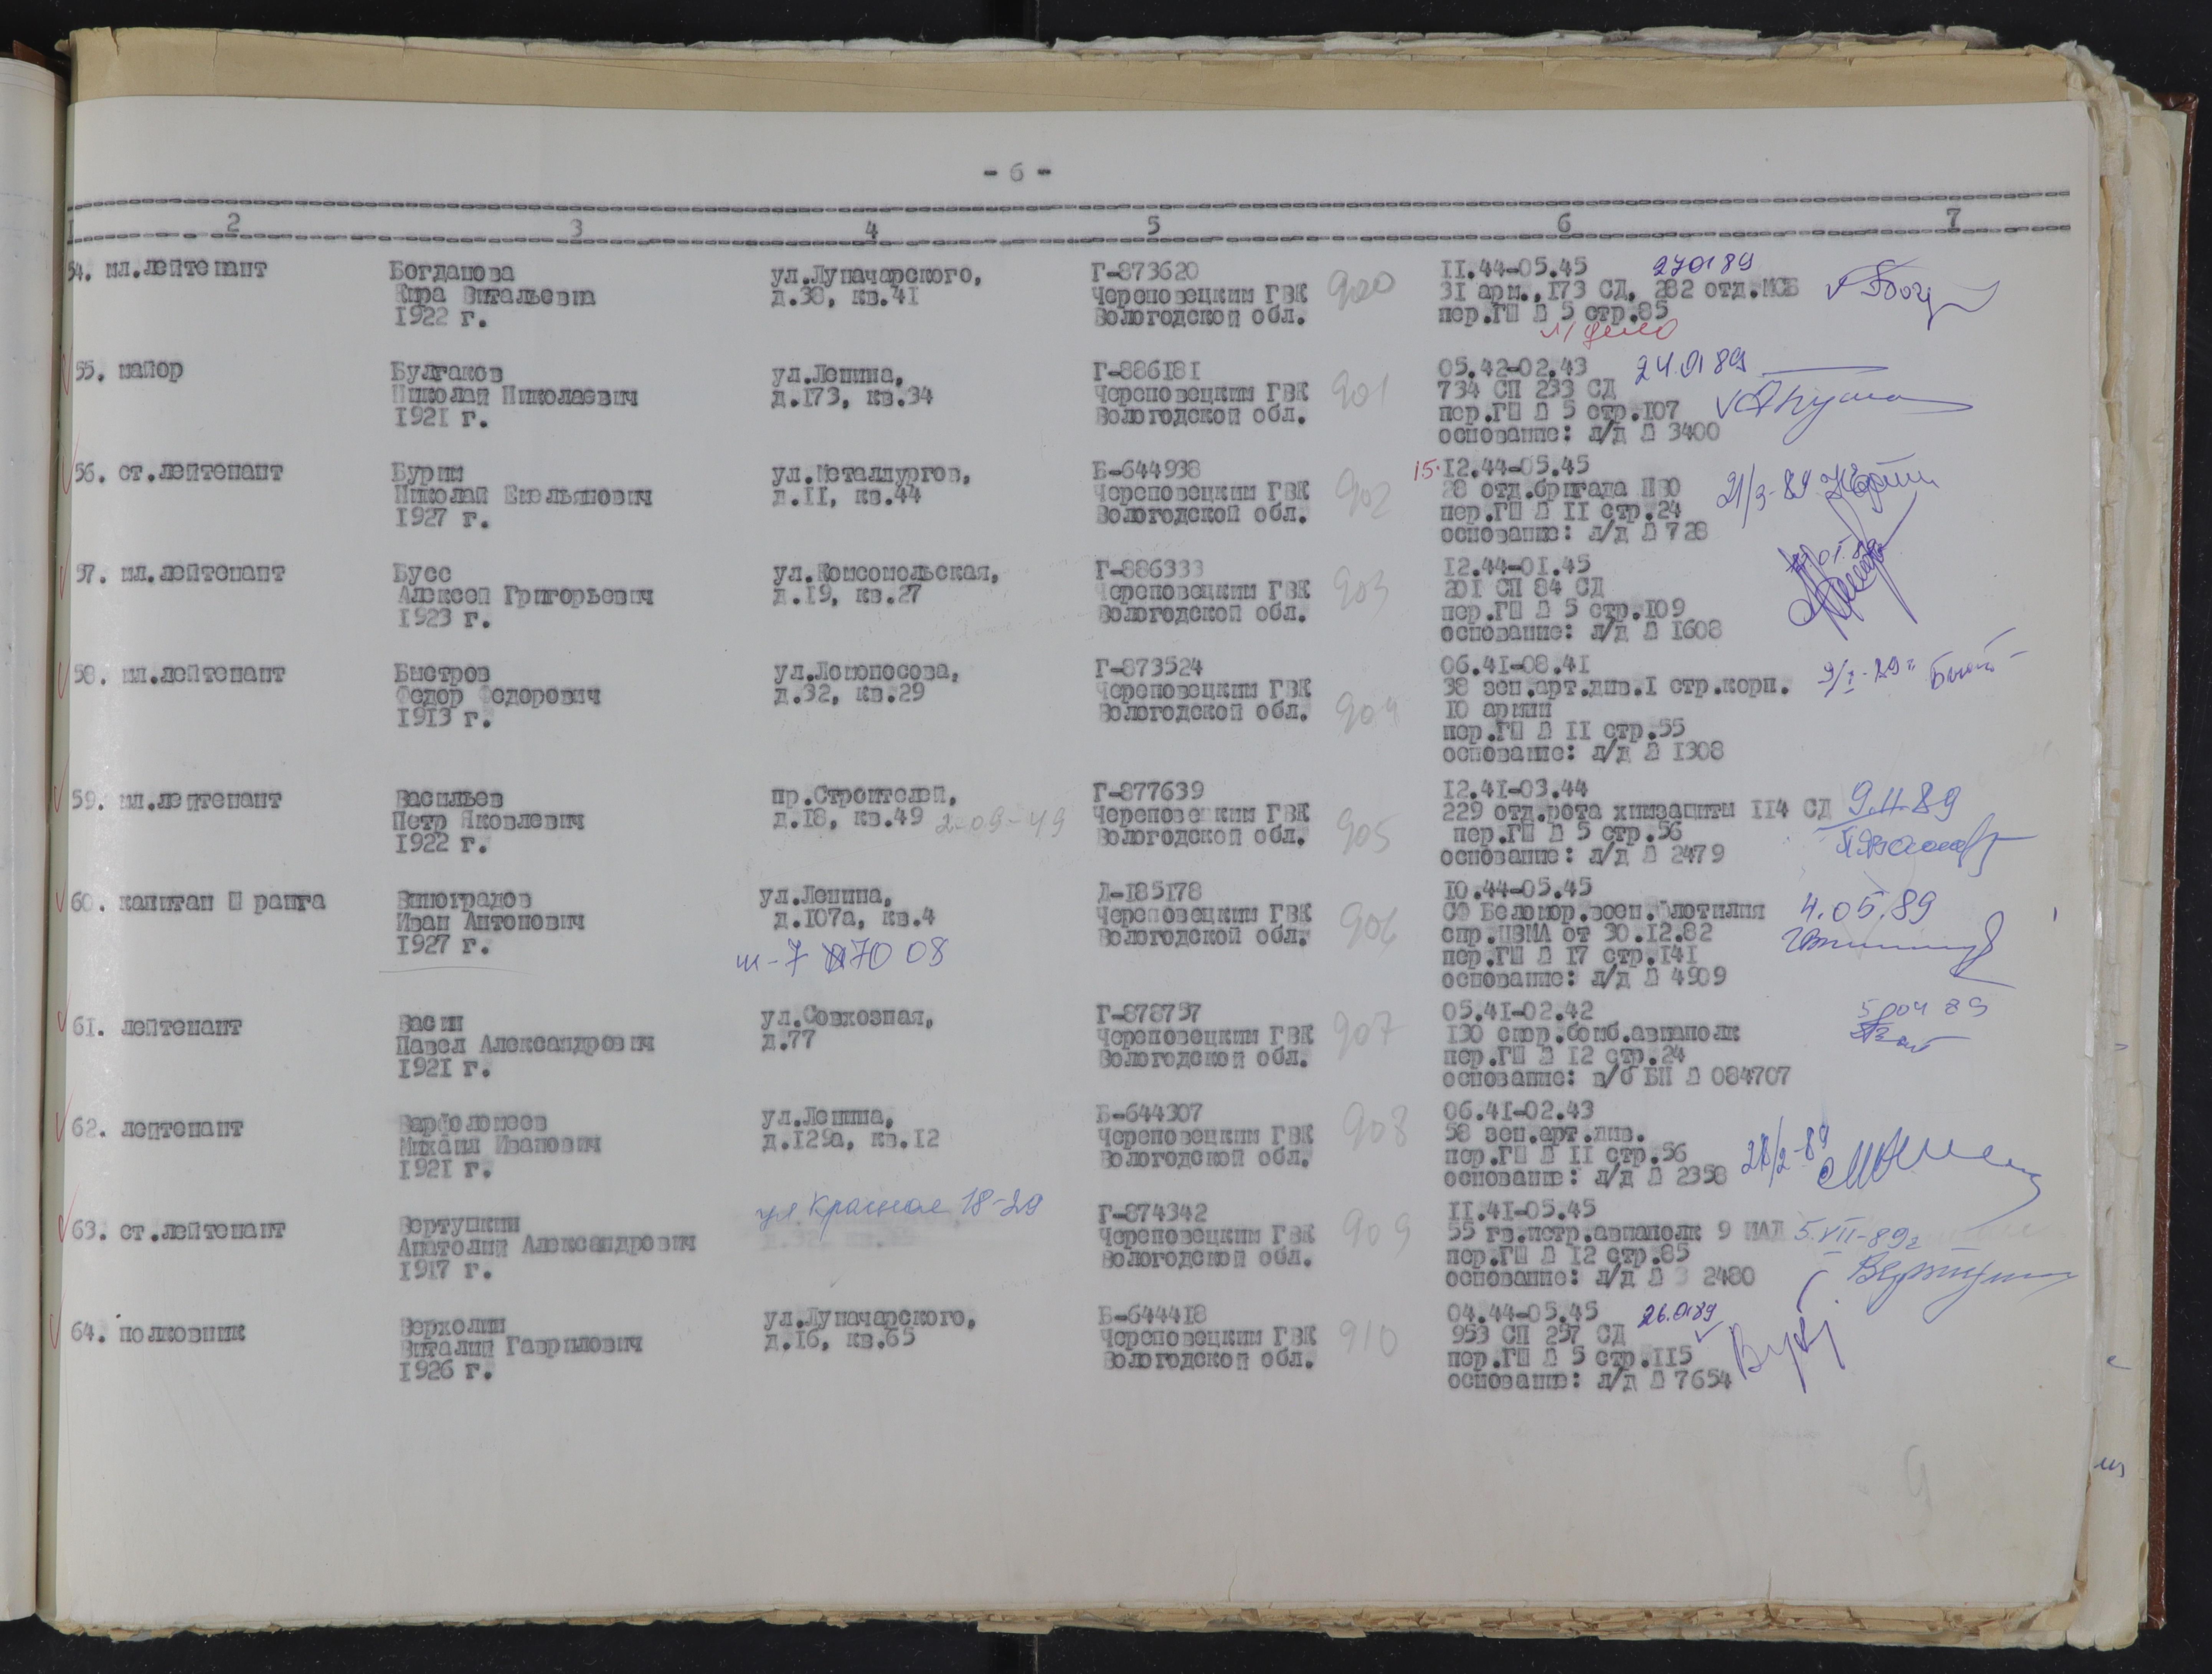 - 6 -
2 3 4 5 6 7
54. мл.лейтенант Богданова ул.Луначарского, Г-873620 II.44-05.45 270189
Кира Витальевна д.38, кв.41 Череповецким ГВК 900 31 арм., 173 СД, 282 отд.МСБ
1922 г. Вологодской обл. пер.ГШ № 5 стр.85
л/дело
55. майор Булгаков ул.Ленина, Г-886181 05.42-02.43 24.01 89
Николай Николаевич д.173, кв.34 Череповецким ГВК 901 734 СП 233 СД
1921 г. Вологодской обл. пер.ГШ № 5 стр.107
основание: л/д № 3400
56. ст.лейтенант Бурим ул.Металлургов, Б-644938 15.12.44-05.45
Николай Емельянович д.II, кв.44 Череповецким ГВК 902 28 отд.бригада ПВО 21/3-89
1927 г. Вологодской обл. пер.ГШ № II стр.24
основание: л/д № 728
57. мл.лейтенант Бусс ул.Комсомольская, Г-886333 12.44-01.45
Алексей Григорьевич д.19, кв.27 Череповецким ГВК 903 201 СП 84 СД
1923 г. Вологодской обл. пер.ГШ № 5 стр.109
основание: л/д № 1608
58. мл.лейтенант Быстров ул.Ломоносова, Г-873524 06.41-08.41
Федор Федорович д.32, кв.29 Череповецким ГВК 904 38 зен.арт.див.I стр.корп.
1913 г. Вологодской обл. 10 армии
пер.ГШ № II стр.55
основание: л/д № 1308
59. мл.лейтенант Васильев пр.Строителей, Г-877639 12.41-03.44 9.II-89
Петр Яковлевич д.18, кв.49 2-09-49 Череповецким ГВК 905 229 отд.рота химзащиты 114 СД
1922 г. Вологодской обл. пер.ГШ № 5 стр.56
основание: л/д № 2479
60. капитан Ш ранга Виноградов ул.Ленина, Д-185178 10.44-05.45
Иван Антонович д.107а, кв.4 Череповецким ГВК 906 СФ Беломор.воен.флотилия 4.05.89
1927 г. Вологодской обл. спр.ЦВМА от 30.12.82
70 08 пер.ГШ № 17 стр.141
основание: л/д № 4909
61. лейтенант Васин ул.Совхозная, Г-878757 05.41-02.42
Павел Александрович д.77 Череповецким ГВК 907 130 скор.бомб.авиаполк
1921 г. Вологодской обл. пер.ГШ № 12 стр.24
основание: в/б БП № 084707
62. лейтенант Варфоломеев ул.Ленина, Б-644307 06.41-02.43
Михаил Иванович д.129а, кв.12 Череповецким ГВК 908 58 зен.арт.див.
1921 г. Вологодской обл. пер.ГШ № II стр.56
основание: л/д № 2358 28/2-89
63. ст.лейтенант Вертушкин ул Красная 18-29 Г-874342 II.41-05.45
Анатолий Александрович Череповецким ГВК 909 55 гв.истр.авиаполк 9 ИАД 5.VII-89г
1917 г. Вологодской обл. пер.ГШ № 12 стр.85
основание: л/д № 2480
64. полковник Верхолин ул.Луначарского, Б-644418 04.44-05.45 26.0189
Виталий Гаврилович д.16, кв.65 Череповецким ГВК 910 953 СП 257 СД
1926 г. Вологодской обл. пер.ГШ № 5 стр.115
основание: л/д № 7654
9